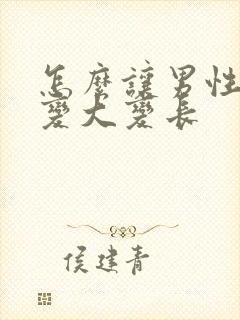 怎麼讓男性
變大變長
侯建青